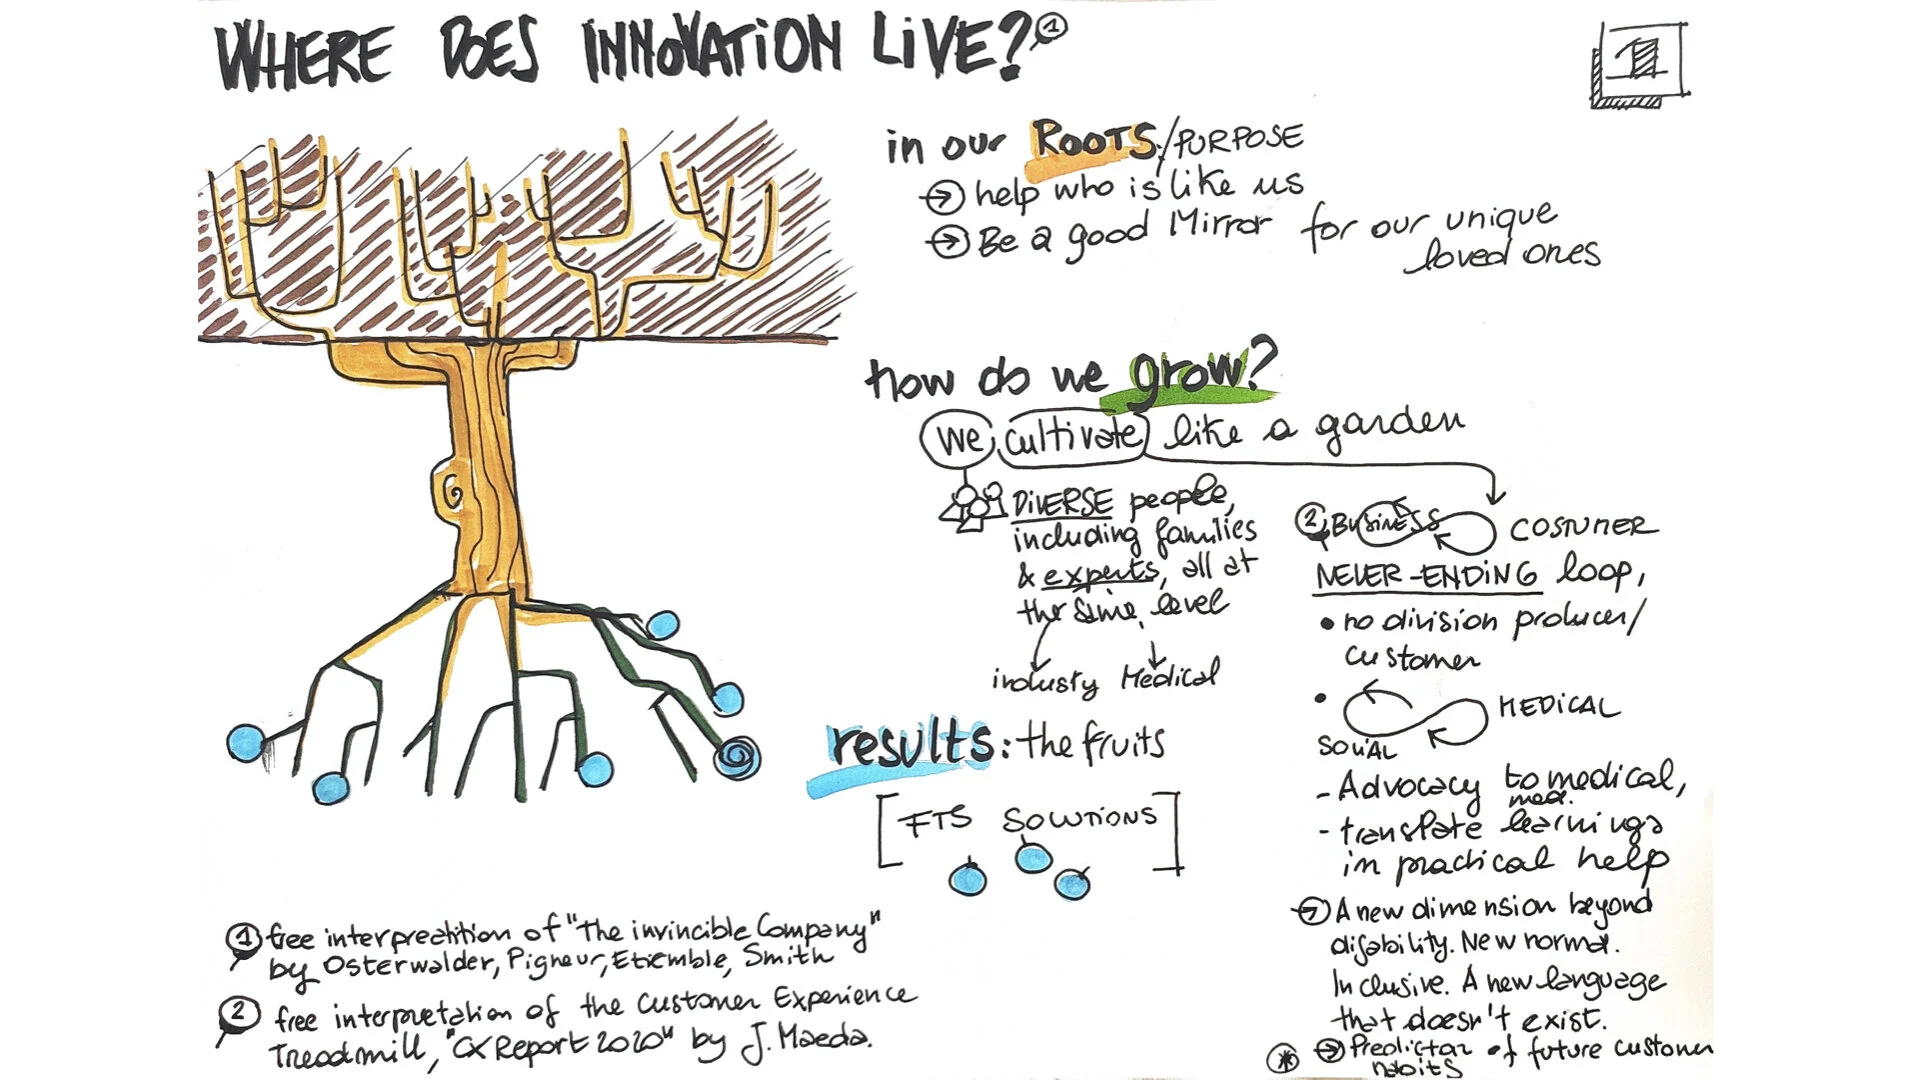 WHERE DOES INNOVATION LIVE? 1
in our ROOTS/PURPOSE
→ help who is like us
→ Be a good Mirror for our unique
loved ones
how do we grow?
we cultivate like a garden
DIVERSE people,
including families
& experts, all at
the same level
industy Medical
results: the fruits
[FTS SOLUTIONS]
2 BUSINESS COSTUMER
NEVER-ENDING loop,
• no division producer/
customer
• MEDICAL
SOCIAL
- Advocacy to medical,
med.
- translate learnings
in practical help
→ A new dimension beyond
disability. New normal.
Inclusive. A new language
that doesn't exist.
* → Predictor of future customer
habits
1 free interpreatition of "the invincible Company"
by Osterwalder, Pigneur, Etiemble, Smith
2 free interpretation of the Customer Experience
Treadmill, "CX Report 2020" by J. Maeda.